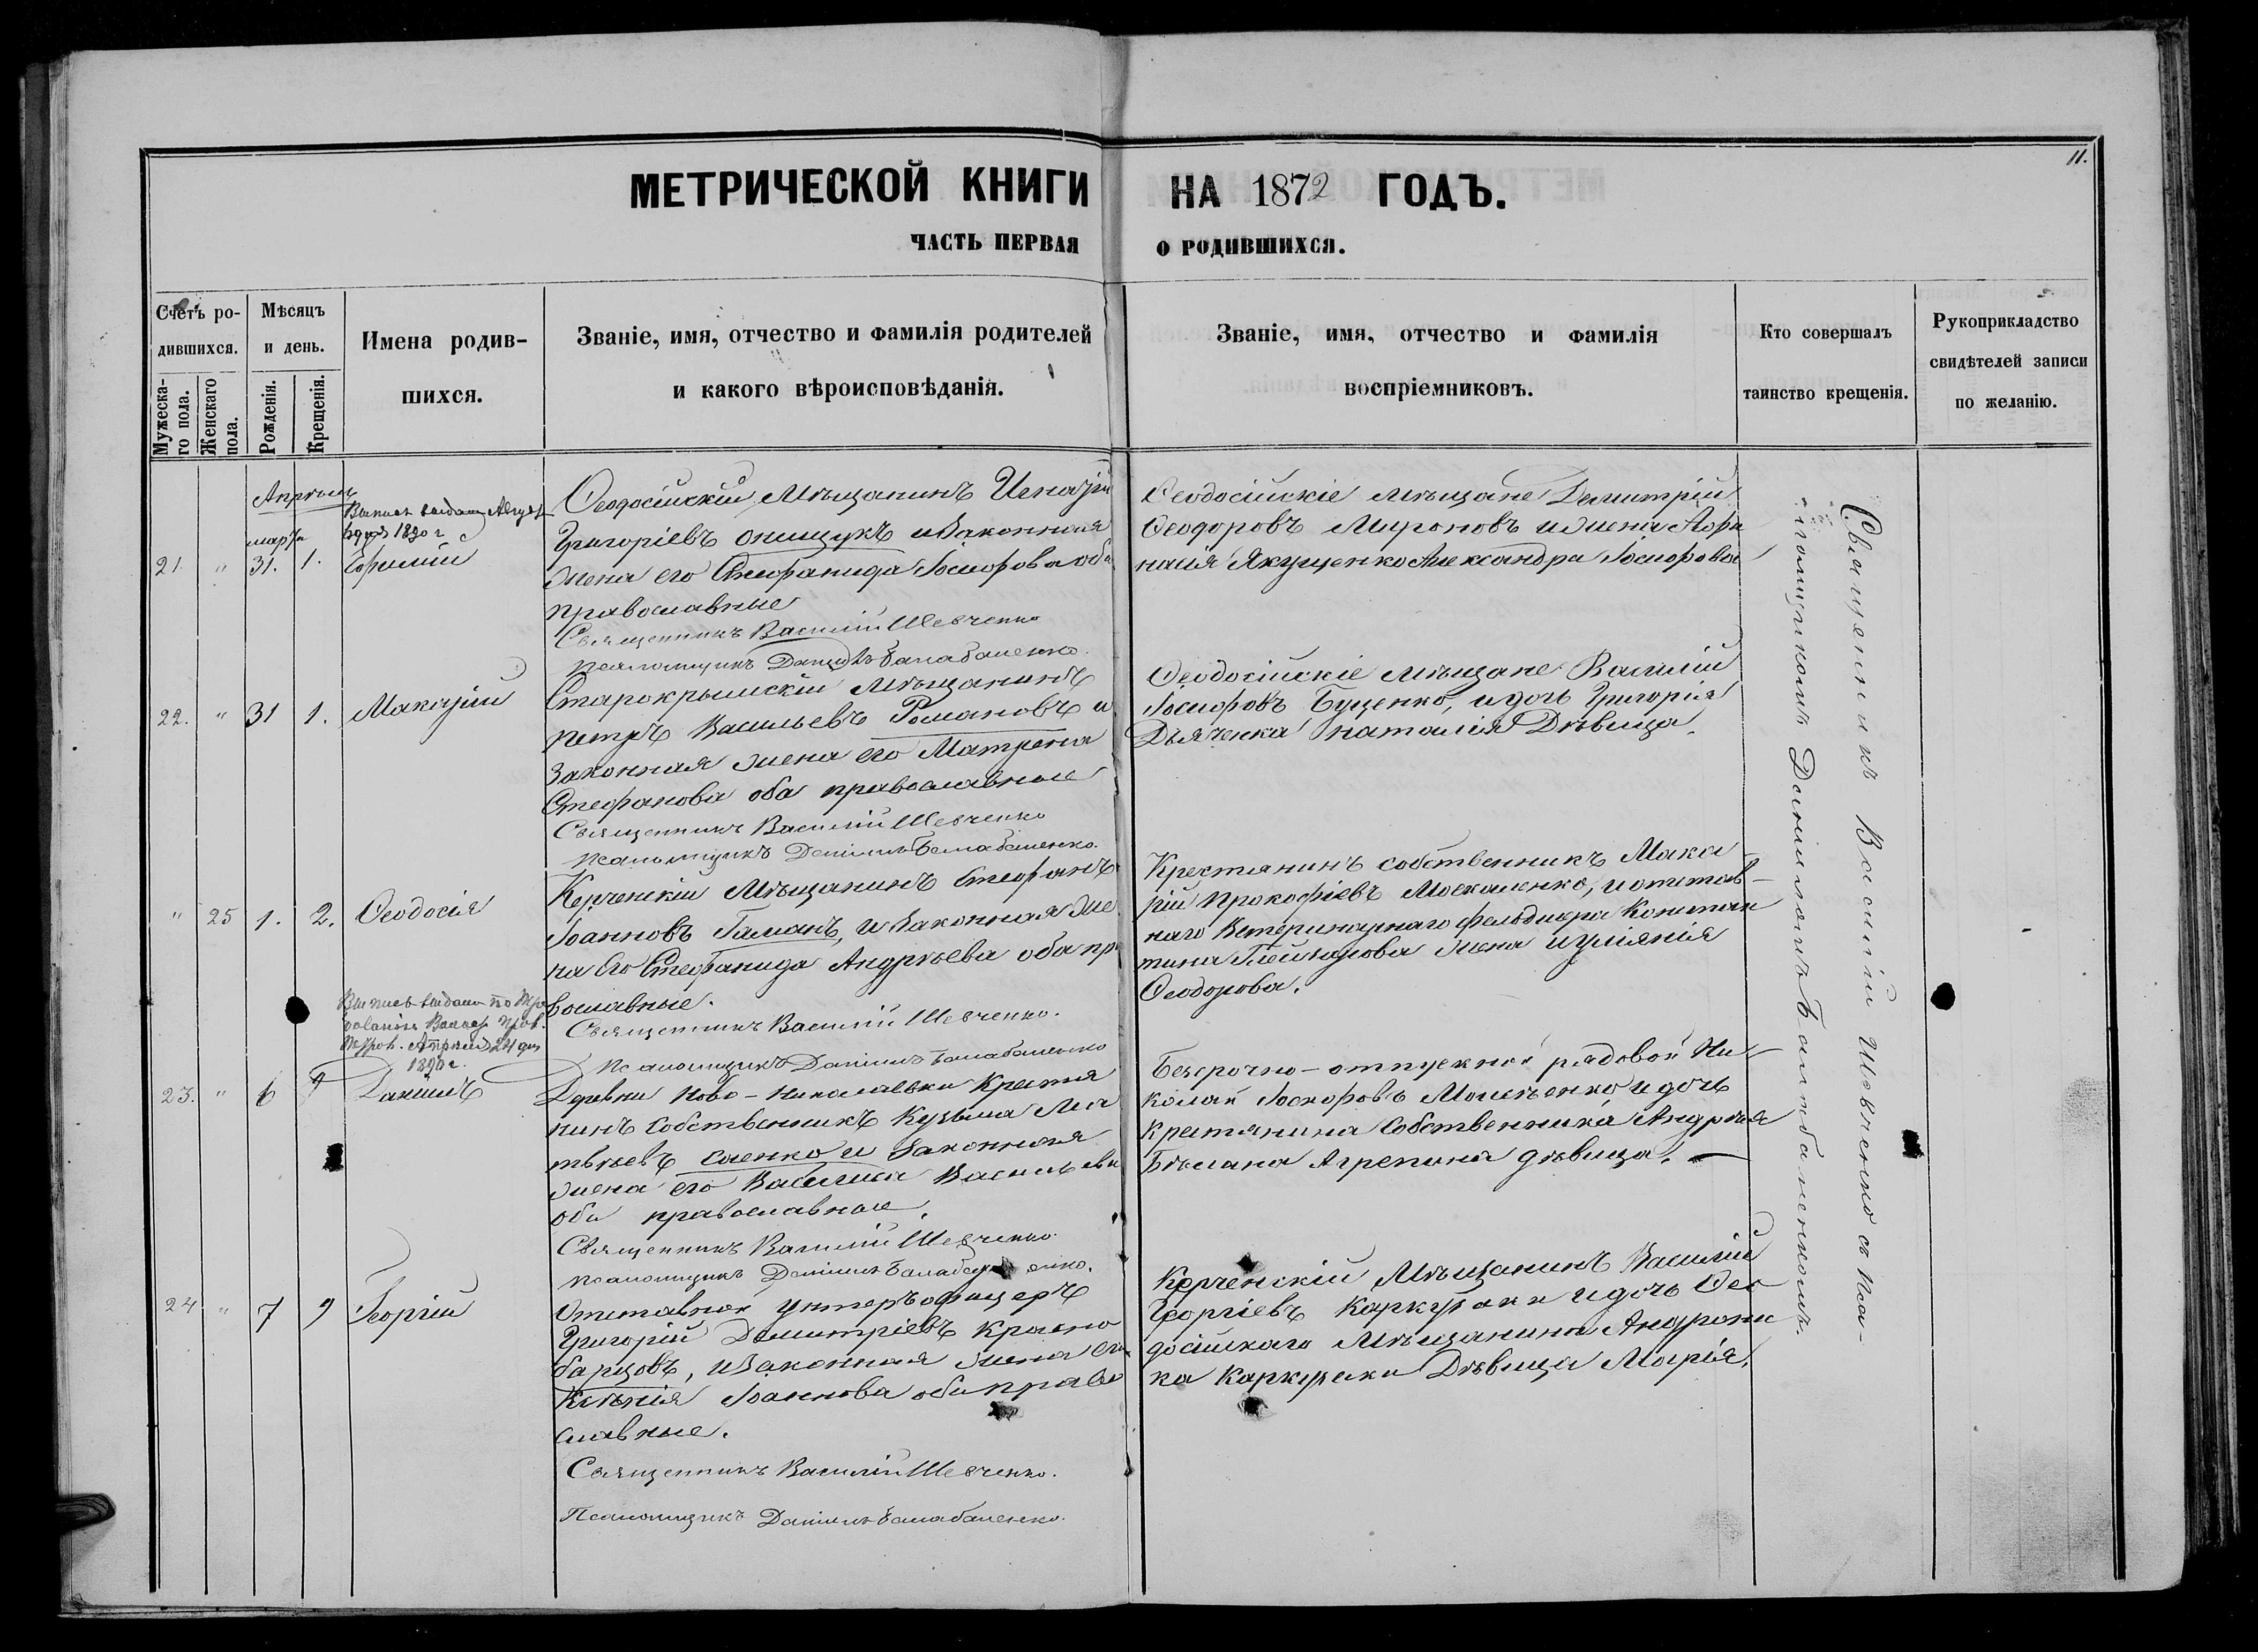 11.
МЕТРИЧЕСКОЙ КНИГИ НА 1872 ГОДЪ.
ЧАСТЬ ПЕРВАЯ О РОДИВШИХСЯ.
Счетъ ро-
дившихся.
Мужеска-
го пола.
Женскаго
пола.
Мѣсяцъ
и день.
Рожденія.
Крещенія.
Имена родив-
шихся.
Званіе, имя, отчество и фамилія родителей
и какого вѣроисповѣданія.
Званіе, имя, отчество и фамилія
воспріемниковъ.
Кто совершалъ
таинство крещенія.
Рукоприкладство
свидѣтелей записи
по желанію.
Апрѣль
марта
Выпись выдана
1890 г
21 " 31. 1.
Ѳеодосійскій Мѣщанинъ Игнатій
Григоріевъ Онищукъ и Законная
Жена его Стефанида Іосифова оба
православные
Священникъ Василій Шевченко
Псаломщикъ Даніилъ Балабаненко.
Ѳеодосійскіе мѣщане Димитрій
Ѳеодоровъ Мироновъ и жена Афа
насія Якущенко Александра Іосифова
22. " 31 1. Макарій
Старокрымскій Мѣщанинъ
Петръ Васильевъ Романовъ и
Законная жена его Матрена
Стефанова оба православные
Священникъ Василій Шевченко
Псаломщикъ Даніилъ Балабаненко.
Ѳеодосійскіе мѣщане Василій
Іосифовъ Буценко, и дочь Григорія
Дьяченка Наталія Дѣвица.
" 25 1. 2. Ѳеодосія
Керченскій Мѣщанинъ Стефанъ
Іоанновъ Гаманъ, и Законная Же
на Его Стефанида Андрѣева оба пр
вославные.
Священникъ Василій Шевченко.
Псаломщикъ Даніилъ Балабаненко
Крестянинъ собственникъ Мака
рій Прокофіевъ Москаленко, и отстав-
наго Ветеринарнаго фельдшера Констан
тина жена Иуліянія
Ѳеодорова.
Выпись выдана по тре
Апрѣля 24 дня
1890 г.
23. " 6 9 Даніилъ
Деревни Ново-Николаевки Крестья
нинъ Собственникъ Кузьма Ма
твѣевъ Саенко и Законная
жена его Васелиса Васильева
оба православные.
Священникъ Василій Шевченко
Псаломщикъ Даніилъ Балабаненко.
Безсрочно-отпускной рядовой Ни-
колай Іосифовъ и дочь
Крестянина Собственника Андрѣя
Агрепина дѣвица.
24 " 7 9 Георгій
Отставной унтеръ офицеръ
Григорій Димитріевъ Красно
барцовъ, и Законная жена его
Ксѣнія Іоаннова оба право
славные.
Священникъ Василій Шевченко.
Псаломщикъ Даніилъ Балабаненко.
Керченскій Мѣщанинъ Василій
Георгіевъ и дочь Ѳео
досійскаго Мѣщанина Андрони
ка Каркураки Дѣвица Марія.
Священникъ Василій Шевченко съ Пса-
ломщикомъ Данііломъ Балабаненкомъ.